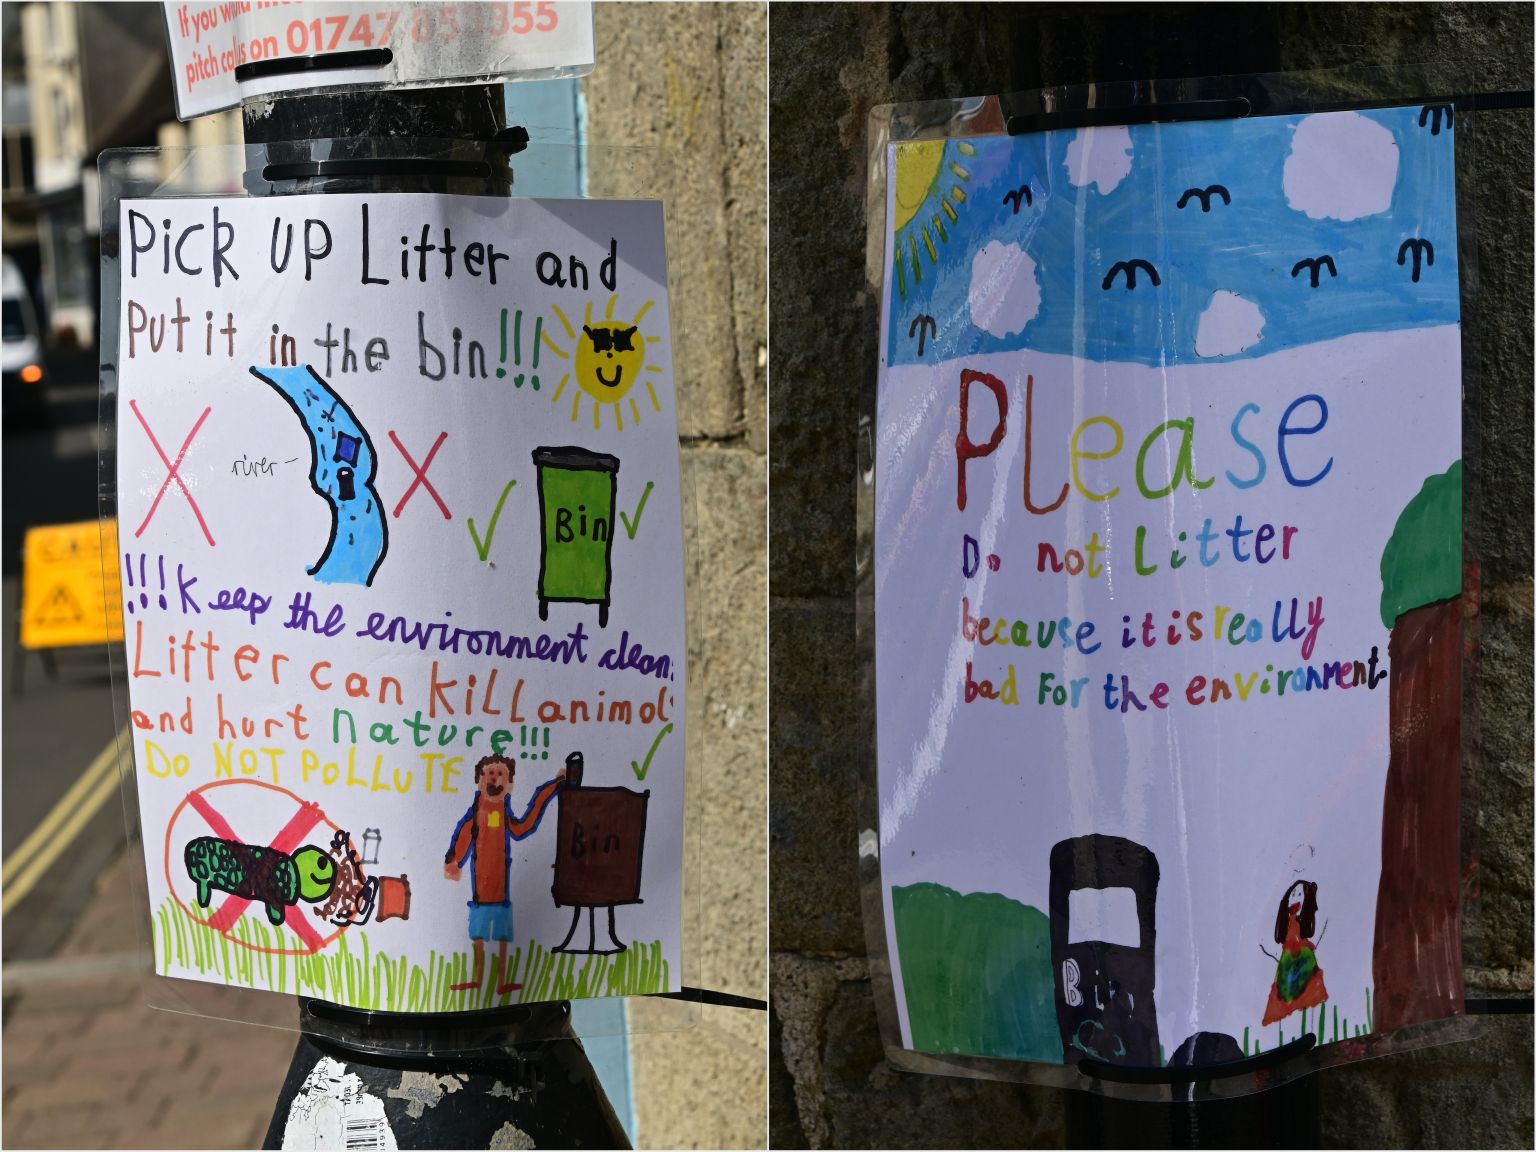 If you would
pitch call us on 01747 85 355
Pick UP Litter and
Put it in the bin!!!
river-
Bin
!!!Keep the environment clean!
Litter can kill animal
and hurt nature!!!
Do NOT POLLUTE
Bin
Please
Do not Litter
because it is really
bad For the environment.
Bin